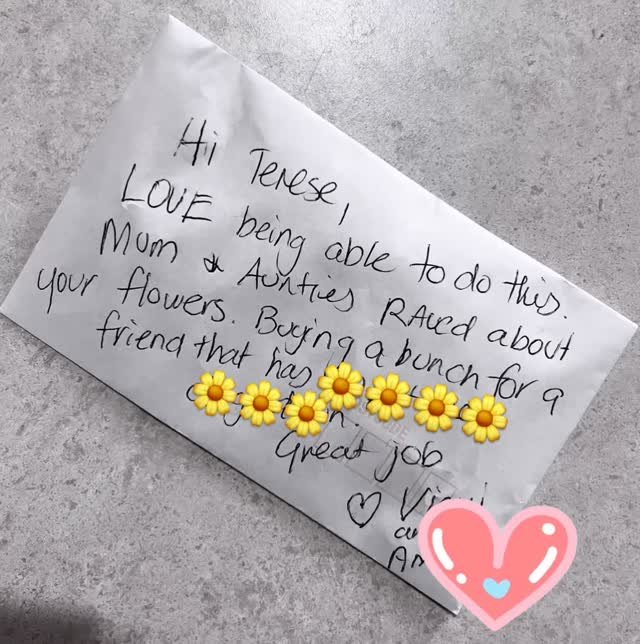 Hi Terese,
LOVE being able to do this.
Mum & Aunties RAVED about
your flowers. Buying a bunch for a
friend that has
Great job
♡